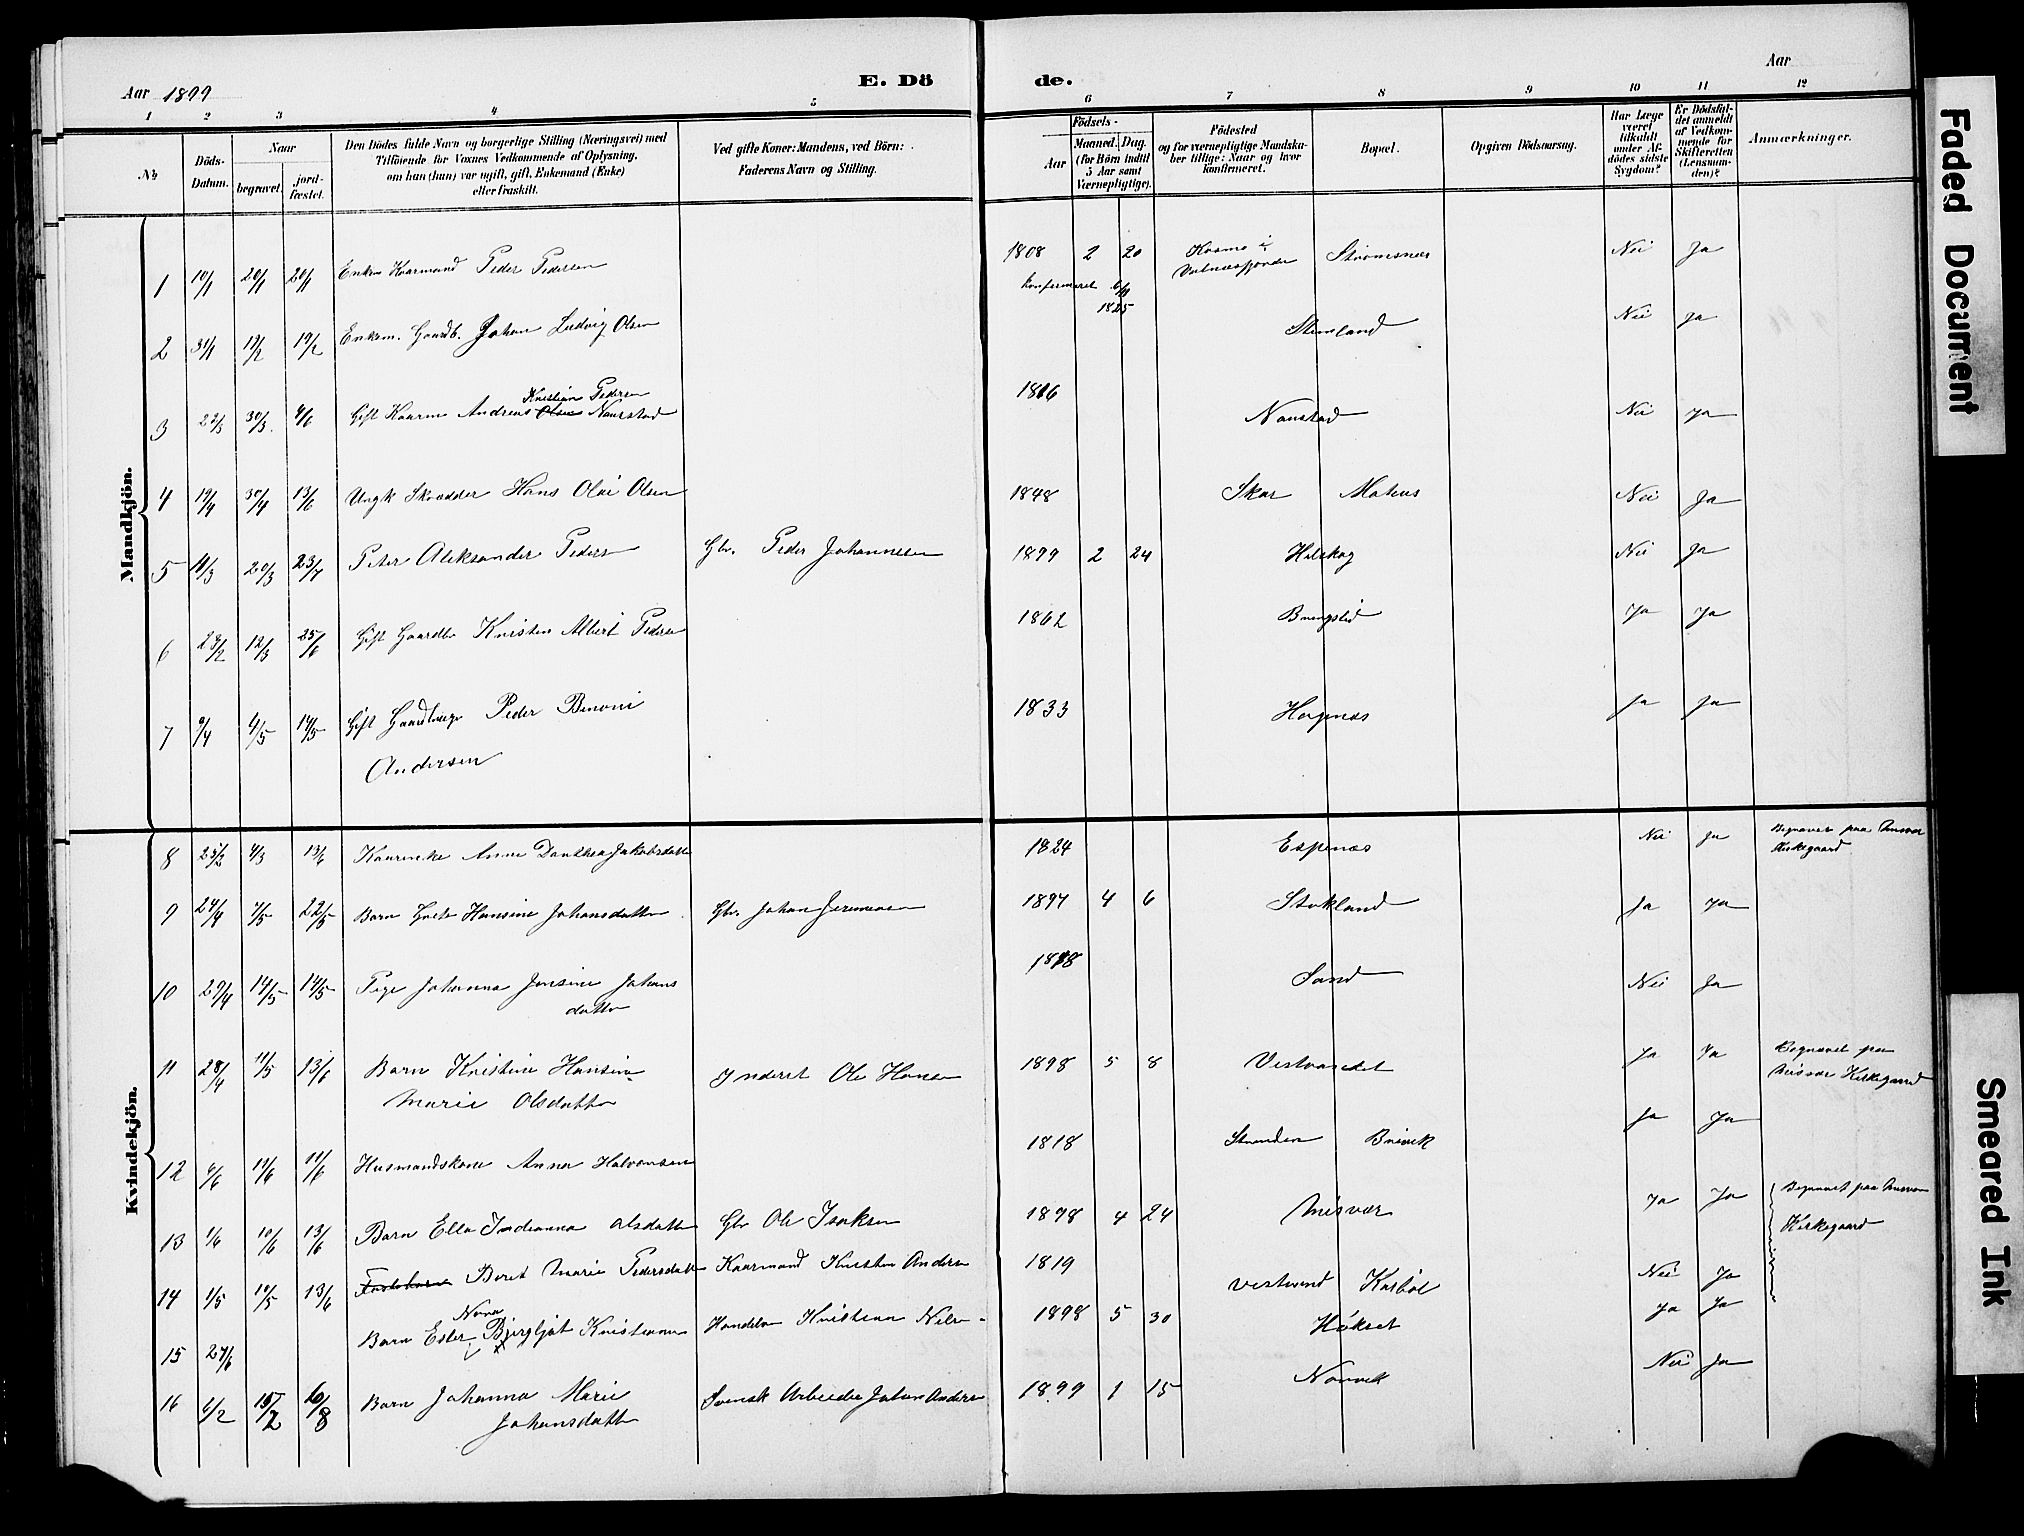 Aar 1899
E. Dö
de.
Aar
1 2 3 4 5 6 7 8 9 10 11 12
No
Döds-Datum.
Naar
begravet.
jord-fæstet.
Den Dödes fulde Navn og borgerlige Stilling (Næringsvei) med
Tilföiende for Voxnes Vedkommende af Oplysning,
om han (hun) var ugift, gift, Enkemand (Enke)
eller fraskilt.
Ved gifte Koner: Mandens, ved Börn:
Faderens Navn og Stilling.
Födsels-
Aar
Maaned. Dag.
(for Börn indtil
5 Aar samt
Værnepligtige).
Födested
og for værnepligtige Mandska-
ber tillige: Naar og hvor
konfirmeret.
Bopæl.
Opgiven Dödsaarsag.
Har Læge
været
tilkaldt
under Af-
dödes sidste
Sygdom?
Er Dödsfal-
det anmeldt
af Vedkom-
mende for
Skifteretten
(Lensman-
den)?
Anmærkninger.
Mandkjön.
1 10/1 20/1 20/1 Enkm Kaarmand Peder Pedersen 1808 2 20 Kosmo i Strømsnes Nei Ja
konfirmeret 6/11
1825
2 31/1 19/2 19/2 Enkem. Gaardb. Johan Ludvig Olsen Stemland Nei Ja
Kristian Pedersen
3 22/3 30/3 4/6 Gift Kaarm Andreas Olsen Naurstad 1816 Naustad Nei Ja
4 19/4 30/4 13/6 Ungk Skrædder Hans Olai Olsen 1848 Skar Mohus Nei Ja
5 11/3 20/3 23/7 Peter Aleksander Peders Gbr. Peder Johannesen 1899 2 24 Hilskog Nei Ja
6 23/2 12/3 25/6 Gift Gaardbr Kristen Albert Peders 1862 Bringslid Ja Ja
7 9/4 4/5 14/5 Gift Gaardbruger Peder Benoni 1833 Hagenæs Ja Ja
Andersen
Kvindekjön.
8 25/2 4/3 13/6 Kaarenke Anne Dorthea Jakobsdatter 1824 Espenæs Nei Ja Begravet paa Misvær
Kirkegaard
9 24/4 7/5 22/5 Barn Hansine Johansdatter Gbr. Johan Jeremiasen 1897 4 6 Stokland Ja Ja
10 29/4 14/5 14/5 Pige Johanna Jensine Johans 1878 Sand Nei Ja
datter
11 28/4 11/5 13/6 Barn Kristine Hansine Inderst Ole Hansen 1898 5 8 Vestvandet Ja Ja Begravet paa
Marie Olsdatter Misvær Kirkegaard
12 6/6 11/6 11/6 Husmandskone Anna Halvorsen 1818 Stranden Brevik Ja Ja
13 1/6 10/6 13/6 Barn Ella Indianna Olsdatter Gbr Ole Isaksen 1898 4 24 Misvær Ja Ja Begravet paa Misvær
Kirkegaard
14 1/5 10/5 13/6 Beret Marie Pedersdatter Kaarmand Kristen Anders 1819 Vestvand Karbøl Nei Ja
Nora
15 27/6 Barn Ester Bjergljot Kristianse Handelsm Kristian Nils 1898 5 30 Høkset Ja Ja
16 6/2 15/2 6/8 Barn Johanna Marie Svensk Arbeider Johan Anders 1899 1 15 Narvik Nei Ja
Johansdatter
Faded Document
Smeared Ink